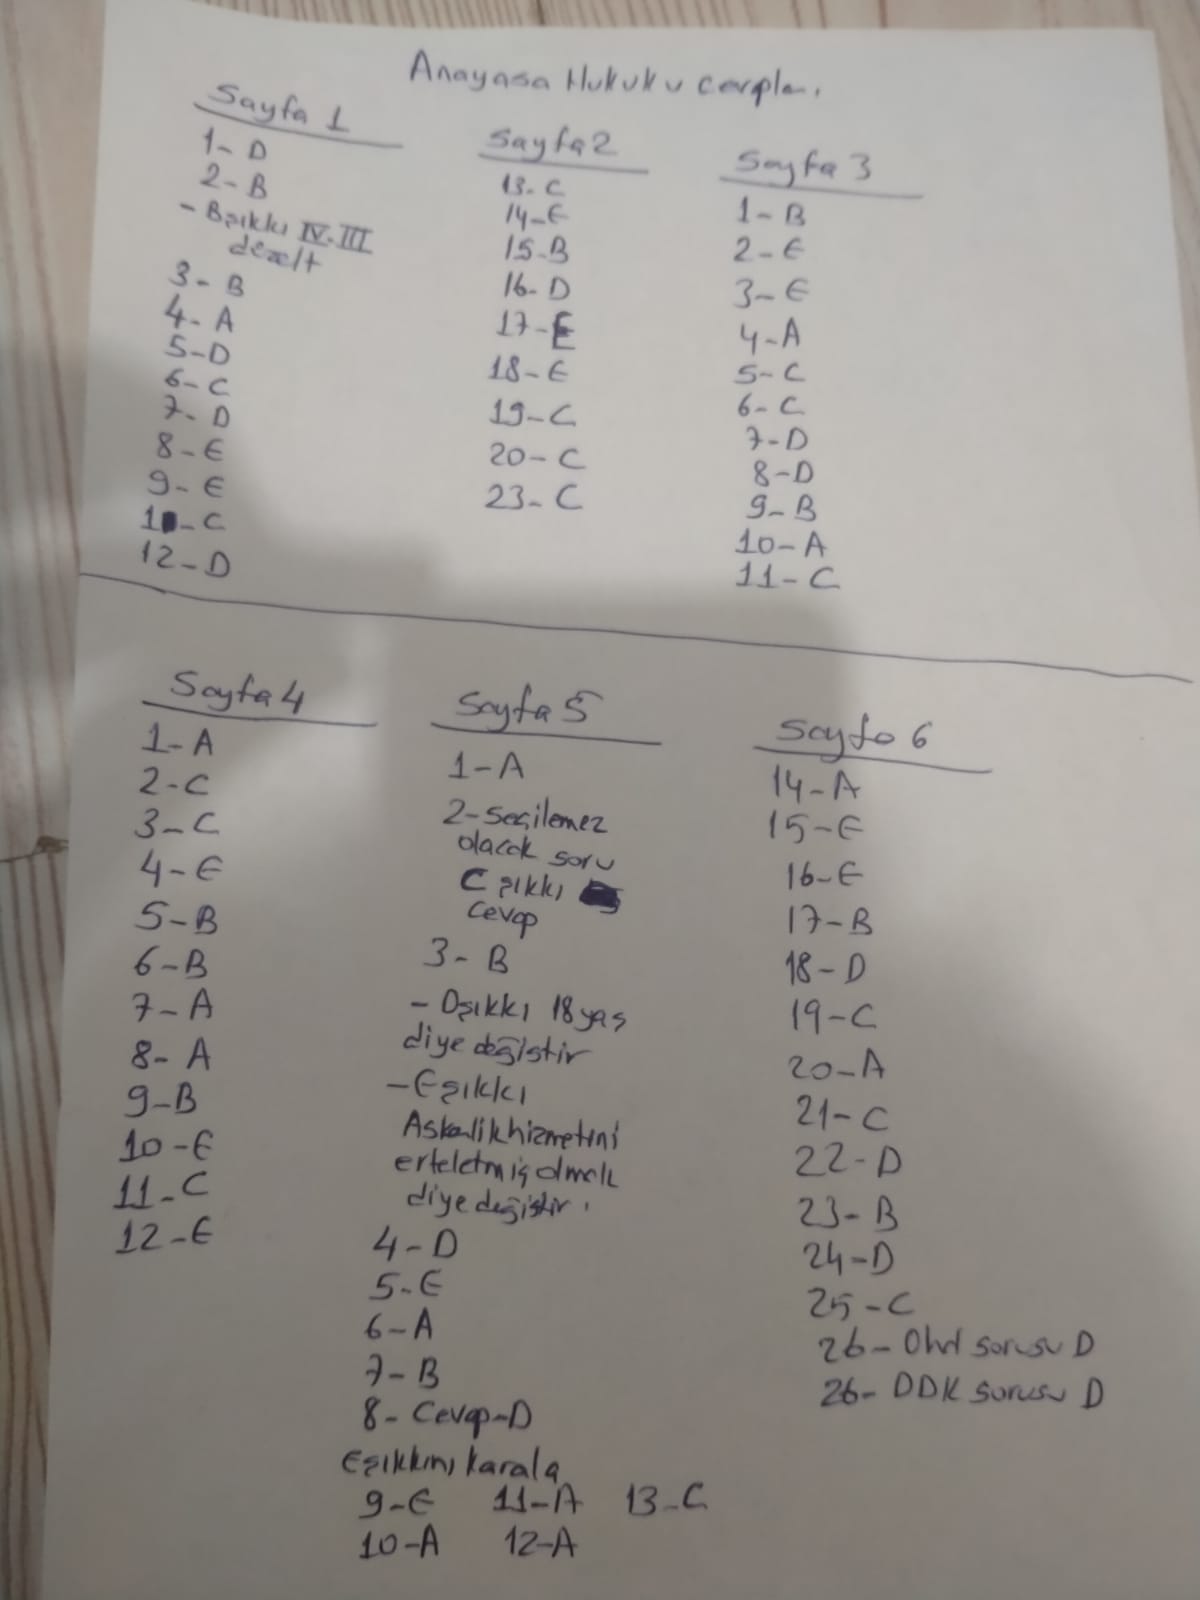 Anayasa Hukuku cevapları
Sayfa 1
1- D
2- B
- B şıkkı IV-III
düzelt
3- B
4- A
5- D
6- C
7- D
8- E
9- E
1-C
12-D
Sayfa 2
13- C
14-E
15-B
16- D
17-E
18-E
19-C
20-C
23-C
Sayfa 3
1-B
2-E
3-E
4-A
5-C
6-C
7-D
8-D
9-B
10-A
11-C
Sayfa 4
1-A
2-C
3-C
4-E
5-B
6-B
7-A
8-A
9-B
10-E
11-C
12-E
Sayfa 5
1-A
2-Seçilemez
olacak soru
C şıkkı
Cevap
3- B
- D şıkkı 18 yaş
diye değiştir
- E şıkkı
Askerlik hizmetini
erteletmiş olmak
diye değiştir.
4-D
5-E
6-A
7-B
8- Cevap-D
E şıkkını karala
9-E 11-A 13-C
10-A 12-A
Sayfa 6
14-A
15-E
16-E
17-B
18-D
19-C
20-A
21-C
22-D
23-B
24-D
25-C
26- Ohal sorusu D
26- DDK sorusu D